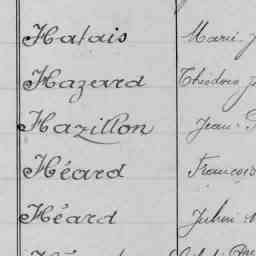 Halais Marie
Hazard Théodore
Hazillon Jean
Héard François
Héard Julien